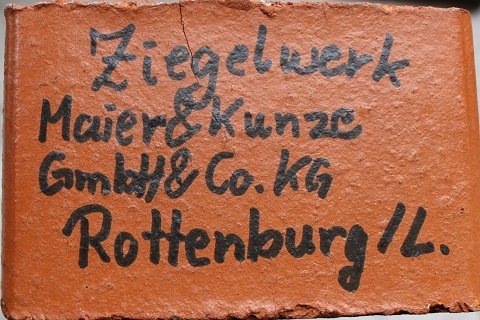 Ziegelwerk
Maier & Kunze
GmbH & Co. KG
Rottenburg/L.